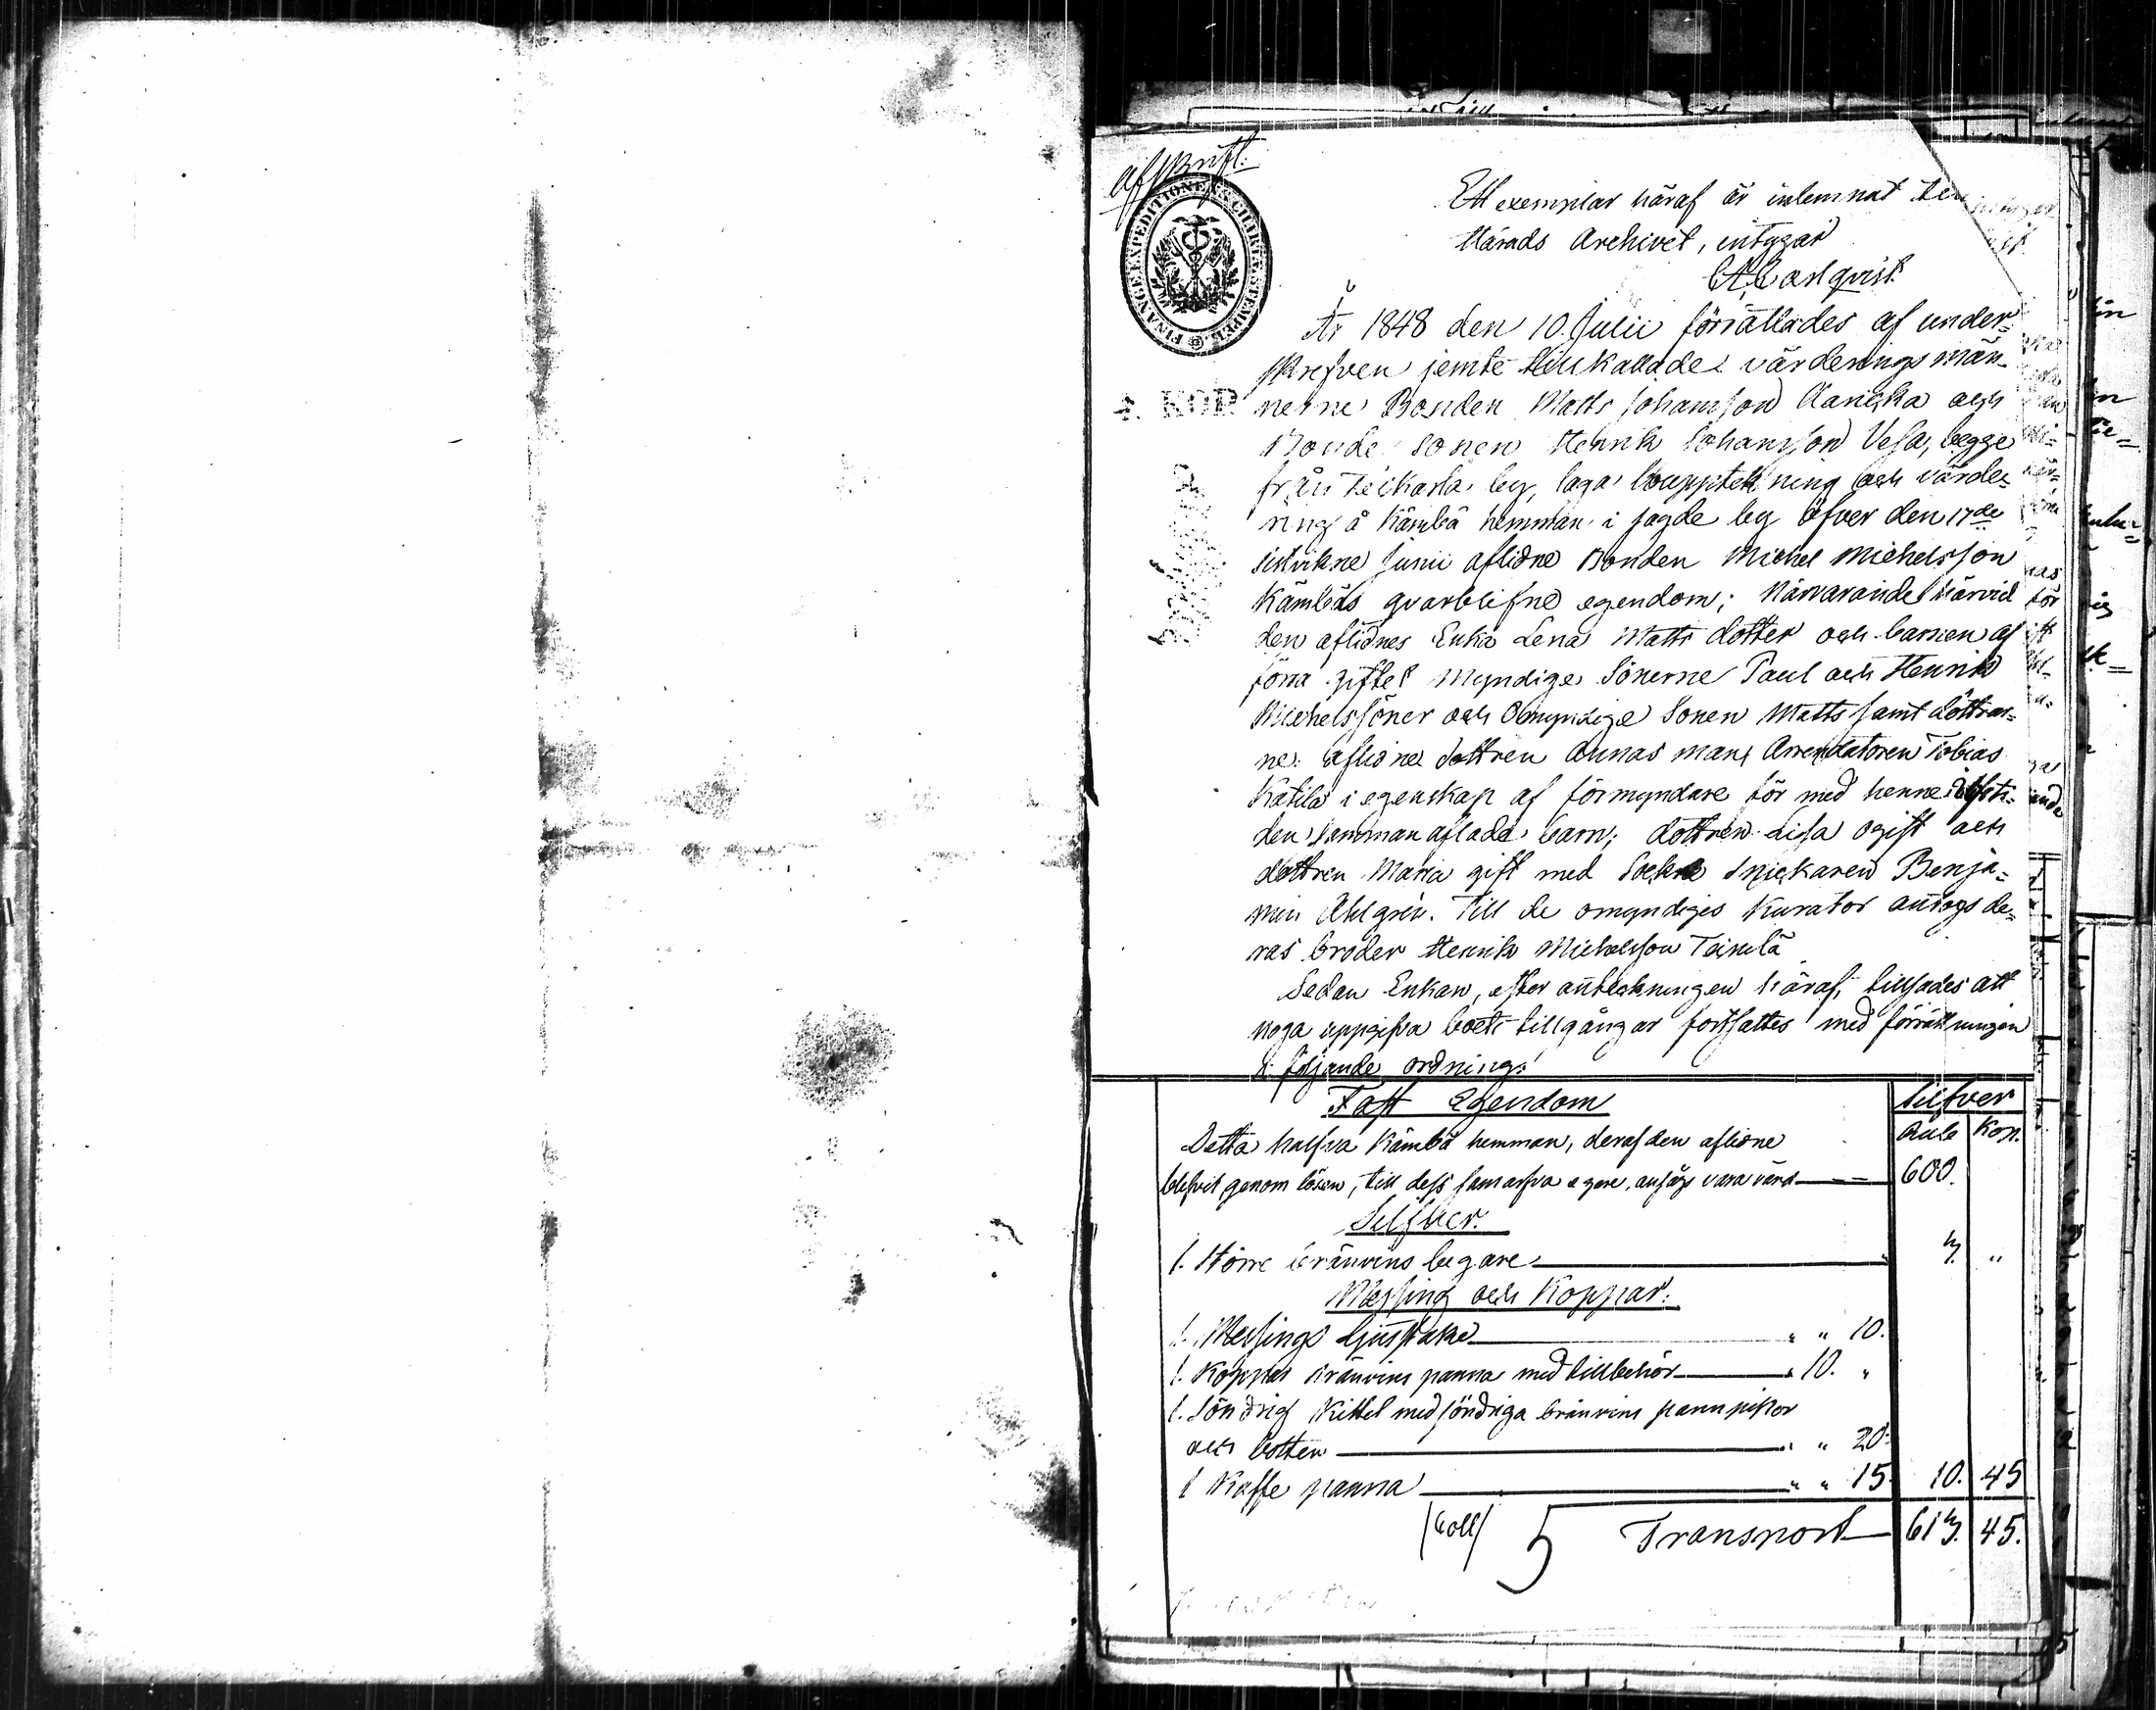 afskrift.
FINANCE EXPEDITIONENS CHARTÆ STEMPEL
4. KOP.
Ett exemplar häraf är inlemnat till
Härads Archivet, intygar
Carlqvist.
År 1848 den 10. Julii förrättades af under-
skrefven jemte tillkallade värderingsmän-
nerne Bonden Matts Johansson Aaniska och
Bonde sonen Henrik Johansson Vesa, begge
från by, laga bouppteckning och värde-
ring å Kämbä hemman i sagde by öfver den 17de
sistvikne Junii aflidne Bonden Michel Michelsson
Kämbäs qvarblifne egendom; Närvarande härvid
den aflidnes Enka Lena Matts dotter och barnen af
förra giftet Myndige Sönerne Paul och Henrik
Michelssöner och Omyndige Sonen Matts samt döttrar-
ne: aflidne dottren Annas man, Arrendatoren Tobias
Kätilä i egenskap af förmyndare för med henne
den samman aflade barn; dottren Lisa ogift och
dottren Maria gift med Sockne Snickaren Benja-
min Ahlgrén. Till de omyndiges Kurator antogs de-
ras broder Henrik Michelsson
Sedan Enkan, efter anteckningen häraf, tillsades att
noga uppgifva boets tillgångar fortsattes med förrättningen
i följande ordning:
Fast Egendom
Silfver
Rub Kop.
Detta halfva Kämbä hemman, deraf den aflidne
blifvit genom lösen, till dess egare, ansågs vara värd 600.
Silfver.
1. Större bränvins begare 7. "
Messing och Koppar.
1. Messings ljusstake " " 10.
1. Koppar bränvins panna med tillbehör " 10. "
1. Söndrig Kittel med söndriga bränvins pannpipor
och botten " " 20.
1 Kaffe panna " " 15. 10. 45
5 Transport 617. 45.